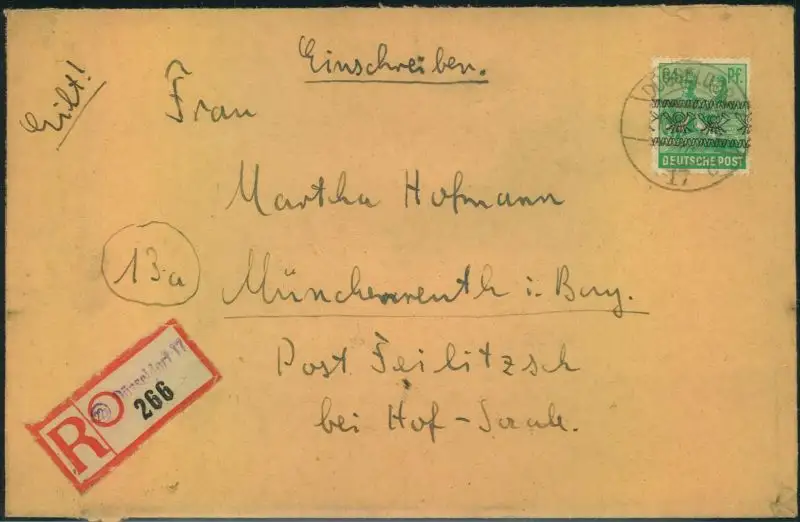 Einschreiben.
Eilt!
Frau
Martha Hofmann
13a
Münchenreuth i. Bay.
Post Feilitzsch
bei Hof-Saale.
R
Düsseldorf 17
266
84 Pf
DEUTSCHE POST
17